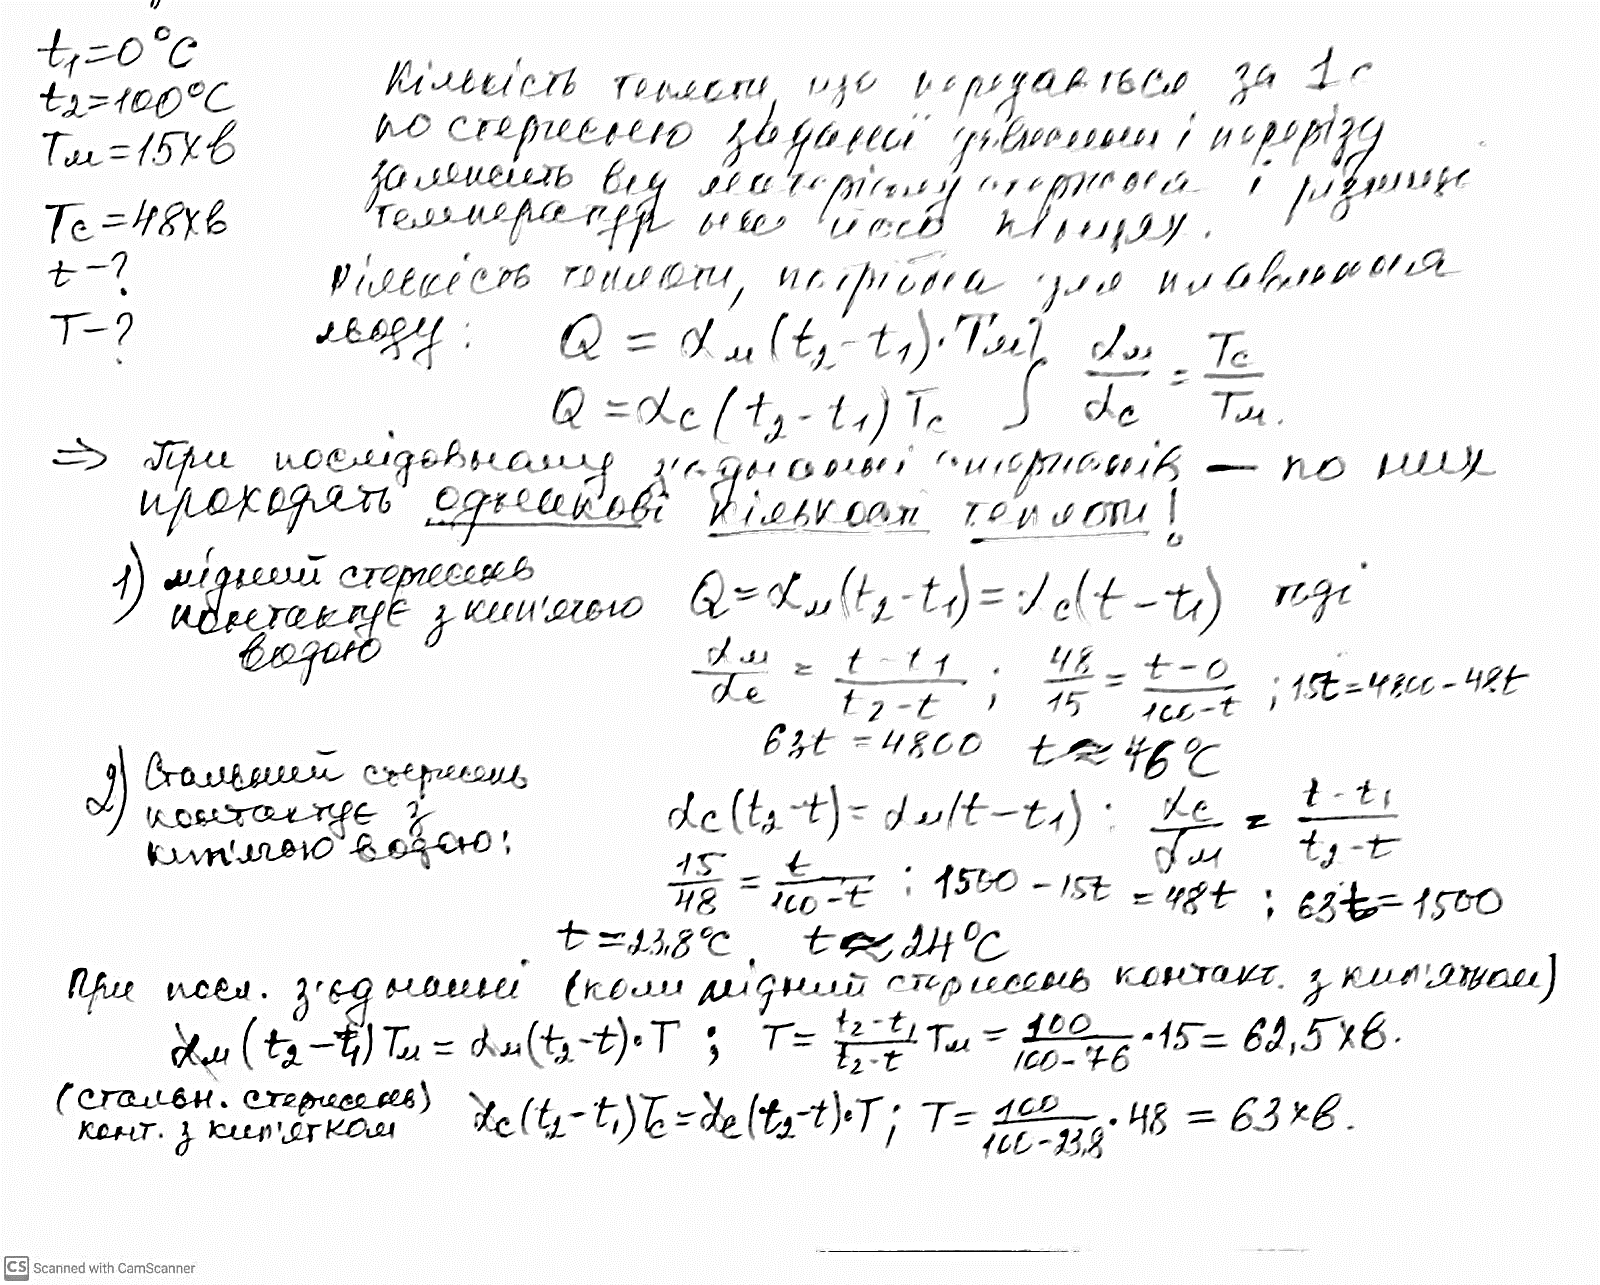 t₁=0°C
t₂=100°C
Tм=15хв
Tс=48хв
t-?
T-?
Кількість теплоти, що передається за 1с
по стержнею заданої довжини і перерізу
залежить від матеріалу стержня і різниці
температур на його кінцях.
Кількість теплоти, потрібна для плавлення
льоду: Q = αм(t₂-t₁)·Tм } αм/αс = Tс/Tм.
Q = αс(t₂-t₁)Tс
⇒ При послідовному з'єднанні стержнів — по них
проходять однакові кількості теплоти!
1) мідний стержень
контактує з кип'ячою
водою
Q=αм(t₂-t₁)=αс(t-t₁) тоді
αм/αс = t-t₁/t₂-t ; 48/15 = t-0/100-t ; 15t=4800-48t
63t = 4800 t ≈ 76°C
2) Стальний стержень
контактує з
кип'ячою водою:
αс(t₂-t)=αм(t-t₁) : αс/αм = t-t₁/t₂-t
15/48 = t/100-t ; 1500-15t = 48t ; 63t=1500
t=23,8°C. t≈24°C
При посл. з'єднанні (коли мідний стержень контакт. з кип'ятком)
αм(t₂-t₁)Tм = αм(t₂-t)·T ; T = t₂-t₁/t₂-t Tм = 100/100-76 ·15 = 62,5хв.
(стальн. стержень)
конт. з кип'ятком
αс(t₂-t₁)Tс=αс(t₂-t)·T ; T= 100/100-23,8 ·48 = 63хв.
CS Scanned with CamScanner